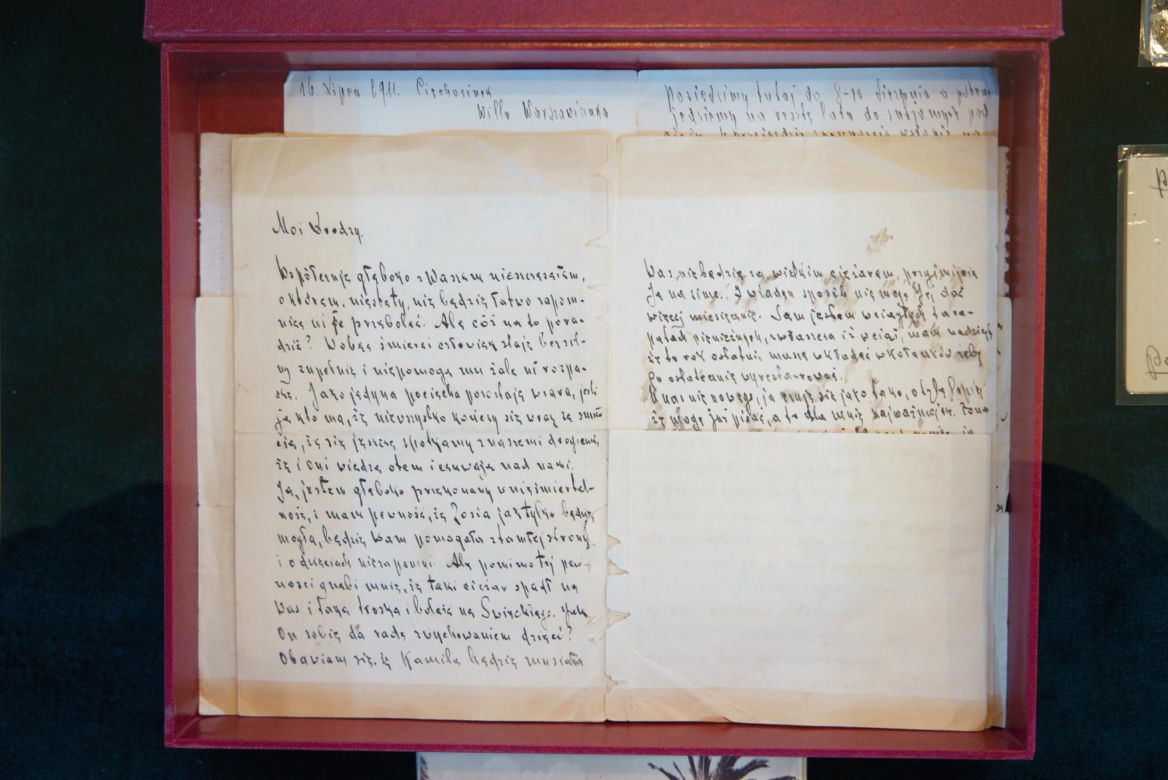 16. Lipca 1911. Ciechocinek
Willa Warszawianka
Posiedzimy tutaj do 8-10 Sierpnia a potem
jedziemy na resztę lata do znajomych pod
Moi Drodzy.
Współczuję głęboko z Waszem nieszczęściem,
o którem, niestety, nie będzie łatwo zapom-
nieć ni je przeboleć. Ale cóż na to pora-
dzić? Wobec śmierci człowiek staje bezsil-
ny zupełnie i niepomogą mu żale ni rozpa-
cze. Jako jedyna pociecha pozostaje wiara, jeśli
ją kto ma, iż niewszystko kończy się wraz ze śmier
cią, iż się jeszcze spotkamy z naszemi drogiemi,
iż i oni wiedzą o tem i czuwają nad nami.
Ja, jestem głęboko przekonany w nieśmiertel-
ność, i mam pewność, iż Zosia jak tylko będzie
mogła, będzie Wam pomagała z tamtej strony
i o dzieciach niezapomni. Ale pomimo tej pew-
ności gnębi mnie, iż taki ciężar spadł na
Was i taka troska i boleść na Święckiego. Jak
On sobie da radę z wychowaniem dzieci?
Obawiam się, iż Kamila będzie musiała
Was nie będzie za wielkim ciężarem, przyjmijcie
Ją na zimę. żaden sposób nie mogę Jej dać
więcej miesięcznie. Sam jestem w ciągłych tara-
patach pieniężnych, zwłaszcza iż wciąż, mam nadzieję
iż to rok ostatni muszę wkładać w Kołtunków żeby
go ostatecznie wyrestaurować.
U nas nic nowego, ja czuję się jako tako, o tyle lepiej
iż mogę już pisać, a to dla mnie najważniejsze. Żona